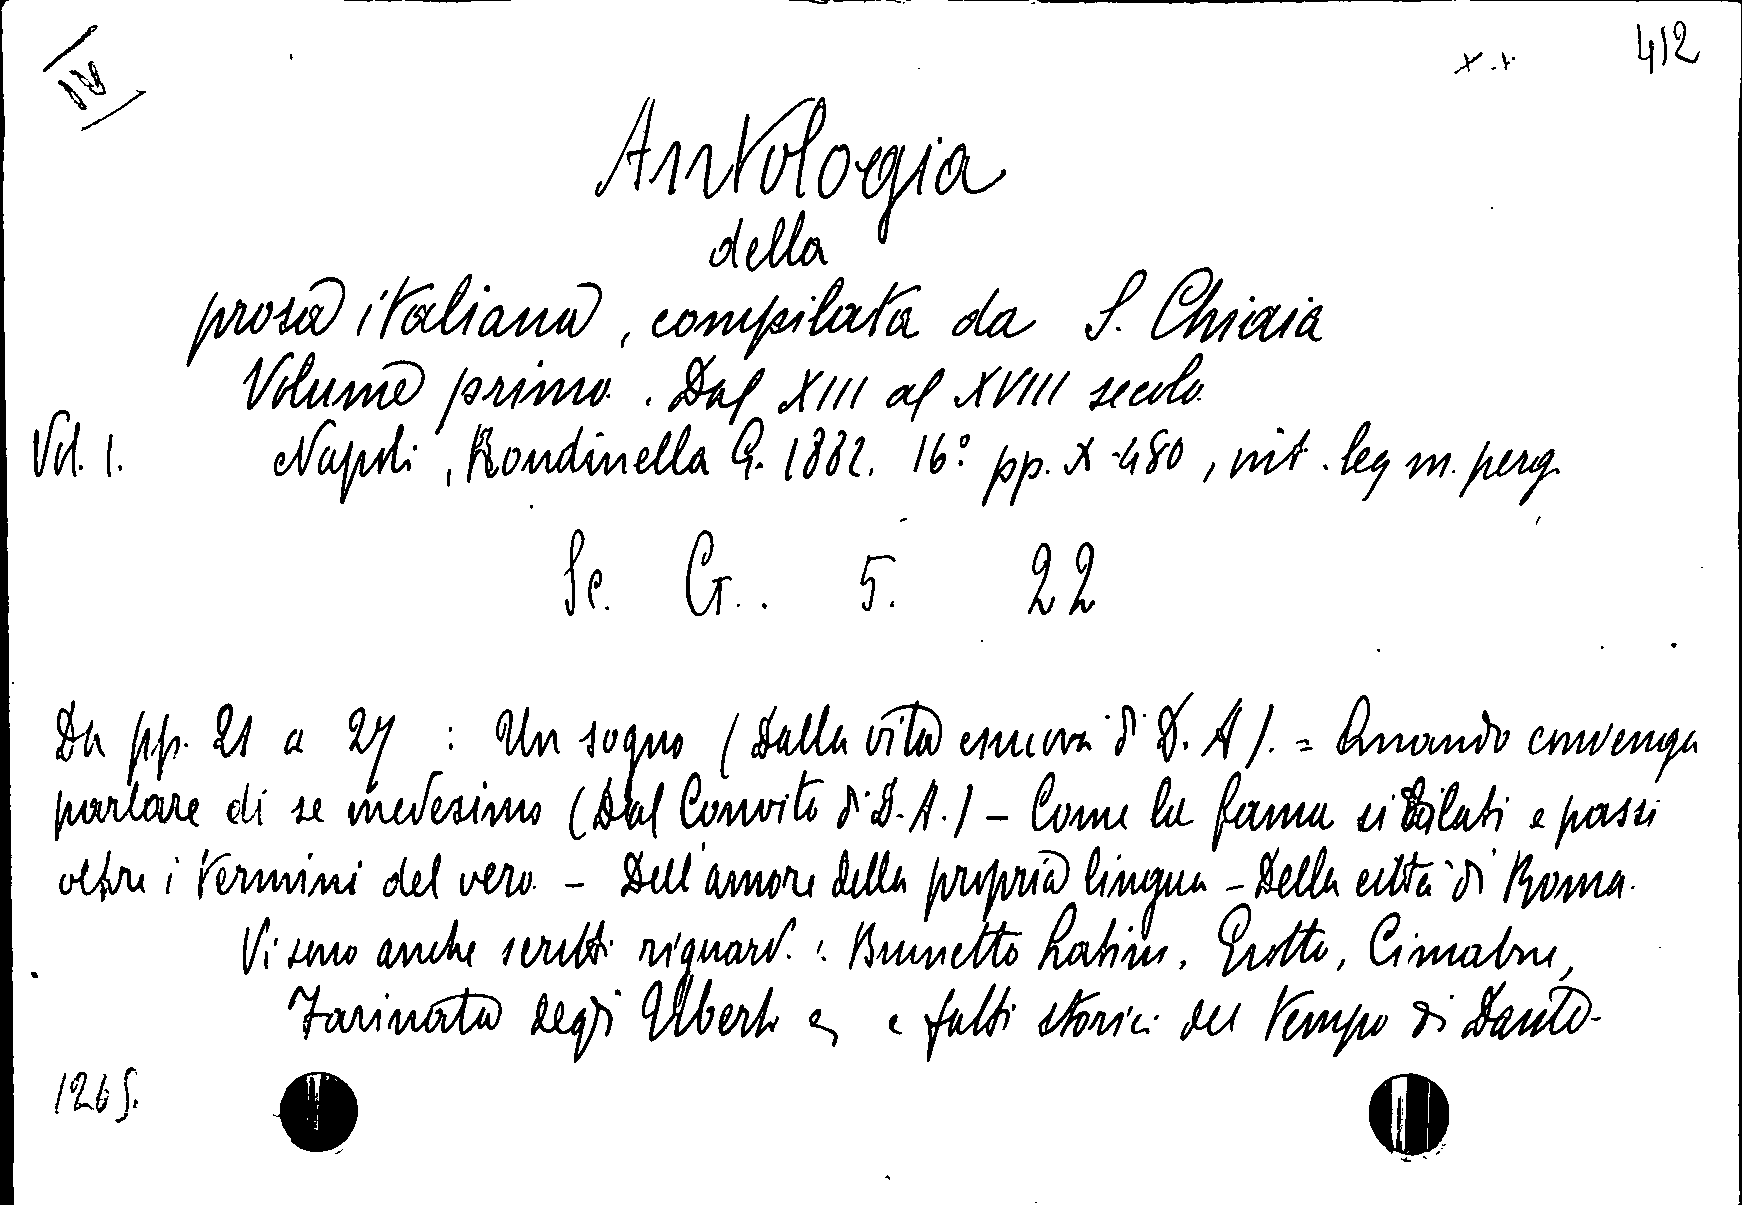 IV
x.x. 412
Antologia
della
prosa italiana, compilata da S. Chiaia
Volume primo. Dal XIII al XVIII secolo
Vol. 1. Napoli, Rondinella G. 1882. 16° pp. X-480, rit. leg m. perg.
Sc. G. 5. 22
Da pp. 21 a 27 : Un sogno (Dalla vita nuova di D. A). = Quando convenga
parlare di se medesimo (Dal Convito di D. A.) - Come la fama si dilati e passi
oltre i termini del vero - Dell'amore della propria lingua - Della città di Roma.
Vi sono anche scritti riguard. : Brunetto Latini, Giotto, Cimabue,
Farinata degli Uberti e fatti storici del tempo di Dante.
1265.